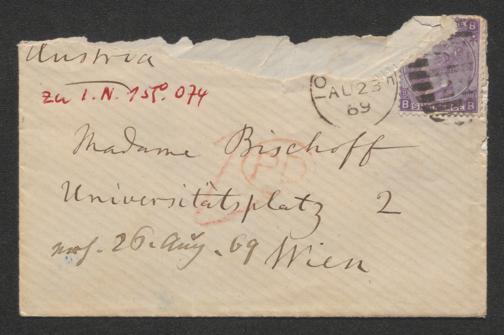 Austria
zu I.N. 158.074
AU 23
69
Madame Bischoff
Universitätsplatz 2
26. Aug. 69 Wien